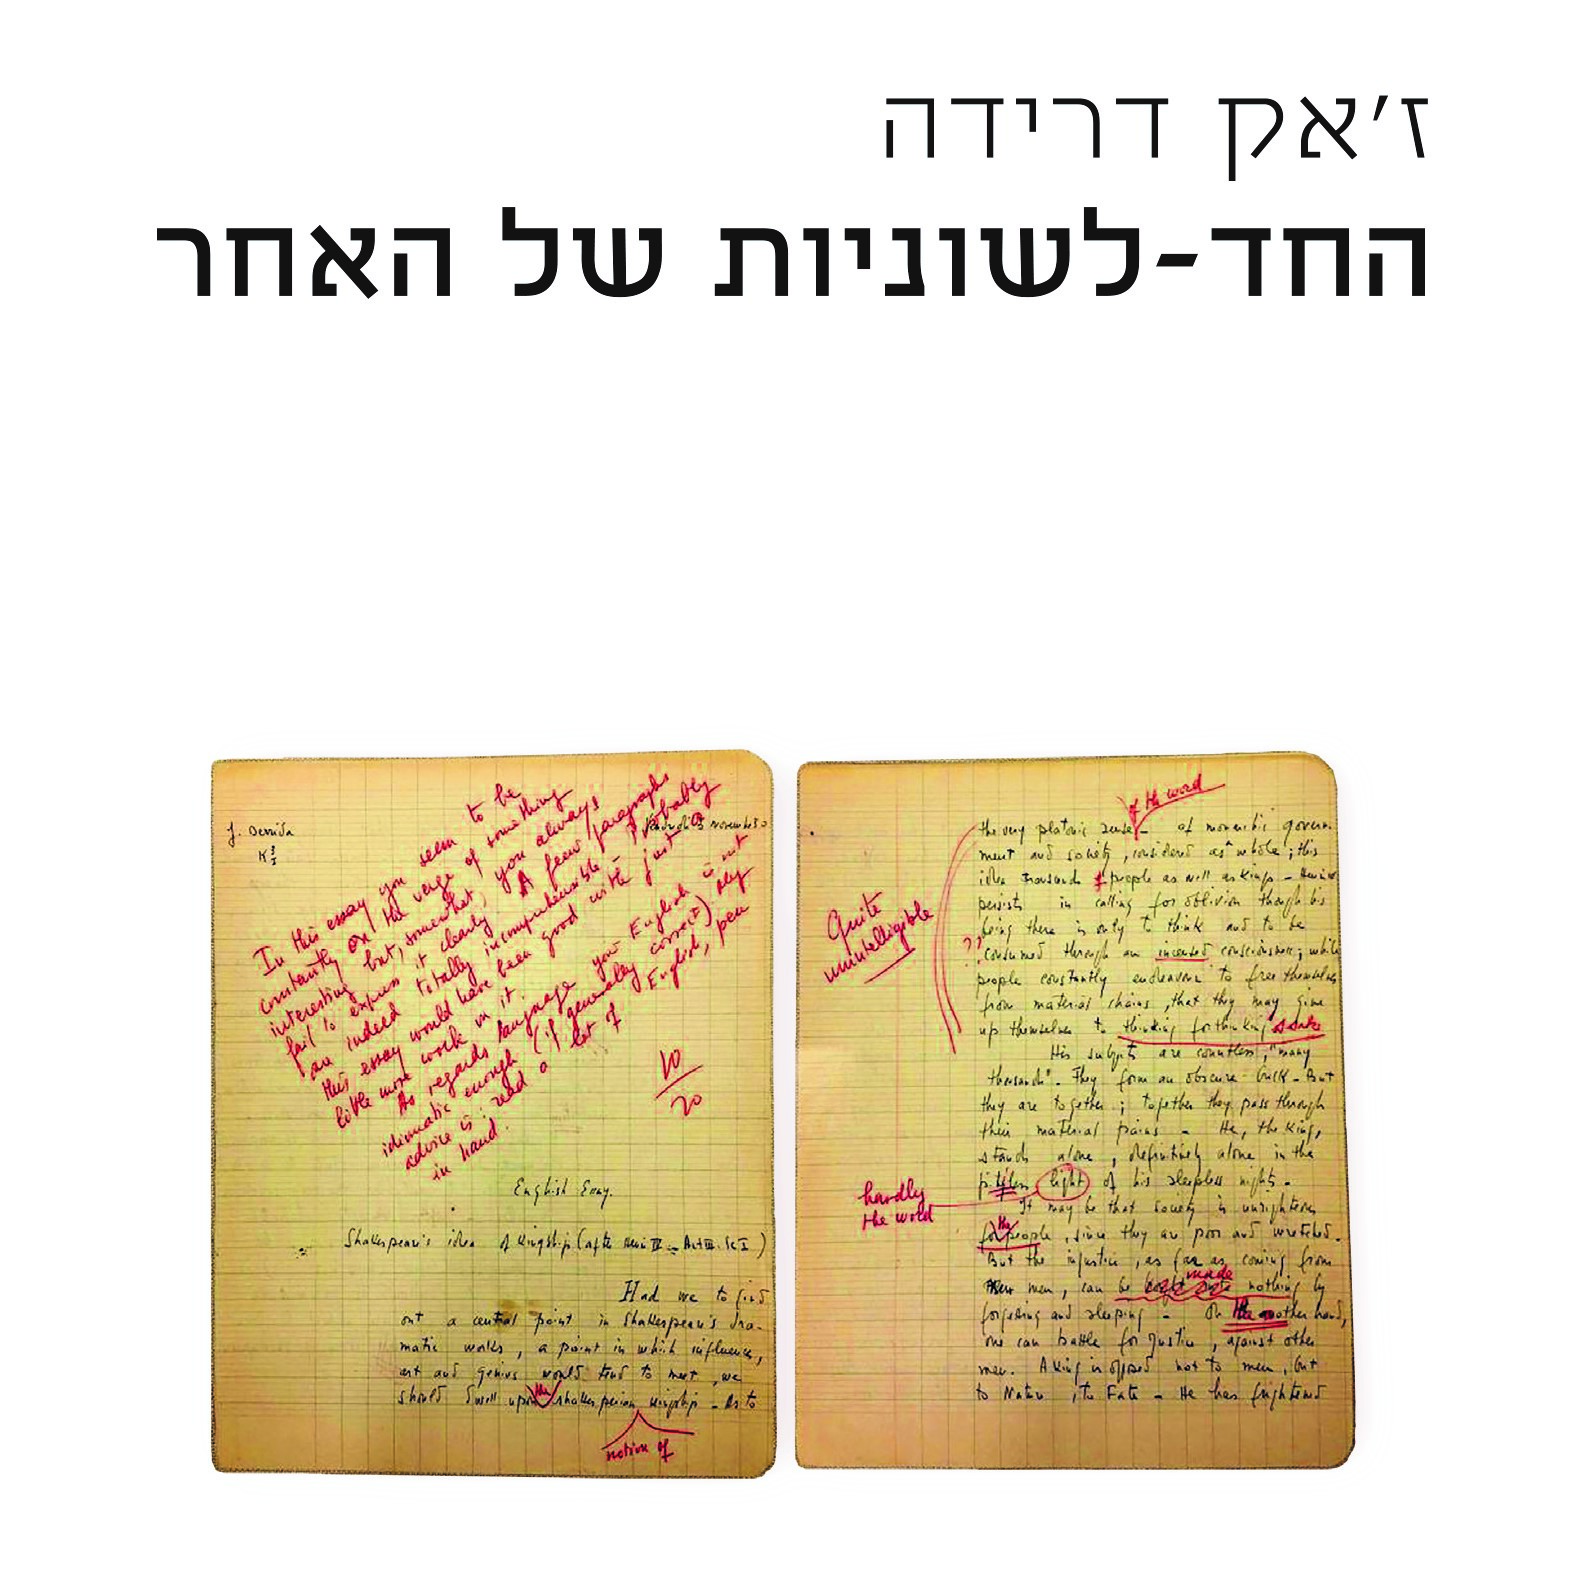 ז'אק דרידה
החד-לשוניות של האחר
J. Derrida
K 3/2
In this essay you seem to be
constantly on the verge of something
interesting but, somewhat, you always
fail to express it clearly. A few paragraphs
are indeed totally incomprehensible. Probably
this essay would have been good with just a
little more work in it.
As regards language your English is not
idiomatic enough (if generally correct) My
advice is: read a lot of English, pen
in hand.
10/20
English Essay.
Shakespeare's idea of Kingship (after Henri IV - Act III. Sc I)
Had we to find
out a central point in Shakespeare's dra-
matic works, a point in which influence,
art and genius would tend to meet, we
should dwell upon the shakesperian kingship - As to
notion of
of the word
the very platonic sense - of monarchic govern-
ment and society, considered as a whole; this
idea thousands people as well as kings - Henri IV
persists in calling for oblivion though his
being there is only to think and to be
consumed through an incensed consciousness; while
people constantly endeavour to free themselves
from material chains, that they may give
up themselves to thinking for thinking's sake
Quite
unintelligible
??
His subjects are countless, "many
thousands". They form an obscure bulk - But
they are together; together they pass through
their material pains - He, the King,
stands alone, definitively alone in the
pitiless light of his sleepless nights -
hardly
the word
It may be that society is unrighteous
for the people, since they are poor and wretched.
But the injustice, as far as coming from
men, can be made nothing by
forgetting and sleeping - On the another hand,
one can battle for justice, against other
men. A King is opposed not to men, but
to Nature, to Fate - He has frightened